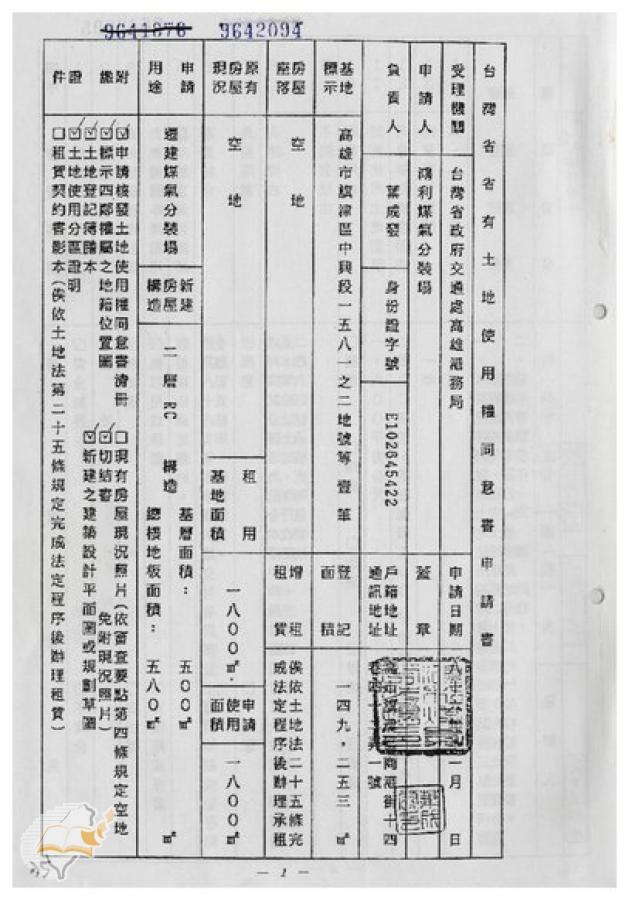 9641876 9642094
台灣省省有土地使用權同意書申請書
受理機關 台灣省政府交通處高雄港務局 申請日期 月 日
申請人 鴻利煤氣分裝場 蓋章
負責人 葉成發 身份證字號 E102645422 戶籍地址 通訊地址 商港街十四 一號
基地標示 高雄市旗津區中興段一五八一之二地號等壹筆 登記面積 一四九,二五三 ㎡
房屋座落 空地 增租租賃 俟依土地法二十五條完成法定程序後辦理承租
原有房屋現況 空地 租用基地面積 一八〇〇㎡ 申請使用面積 一八〇〇㎡
申請用途 遷建煤氣分裝場 新建房屋構造 二層RC構造 基層面積: 五〇〇㎡
總樓地板面積: 五八〇㎡
附繳證件
☑申請核發土地使用權同意書清冊 □現有房屋現況照片(依審查要點第四條規定空地免附現況照片)
☑標示四鄰權屬之地籍位置圖 ☑切結書
☑土地登記簿謄本 ☑新建之建築設計平面圖或規劃草圖
☑土地使用分區證明
□租賃契約書影本(俟依土地法第二十五條規定完成法定程序後辦理租賃)
— 1 —